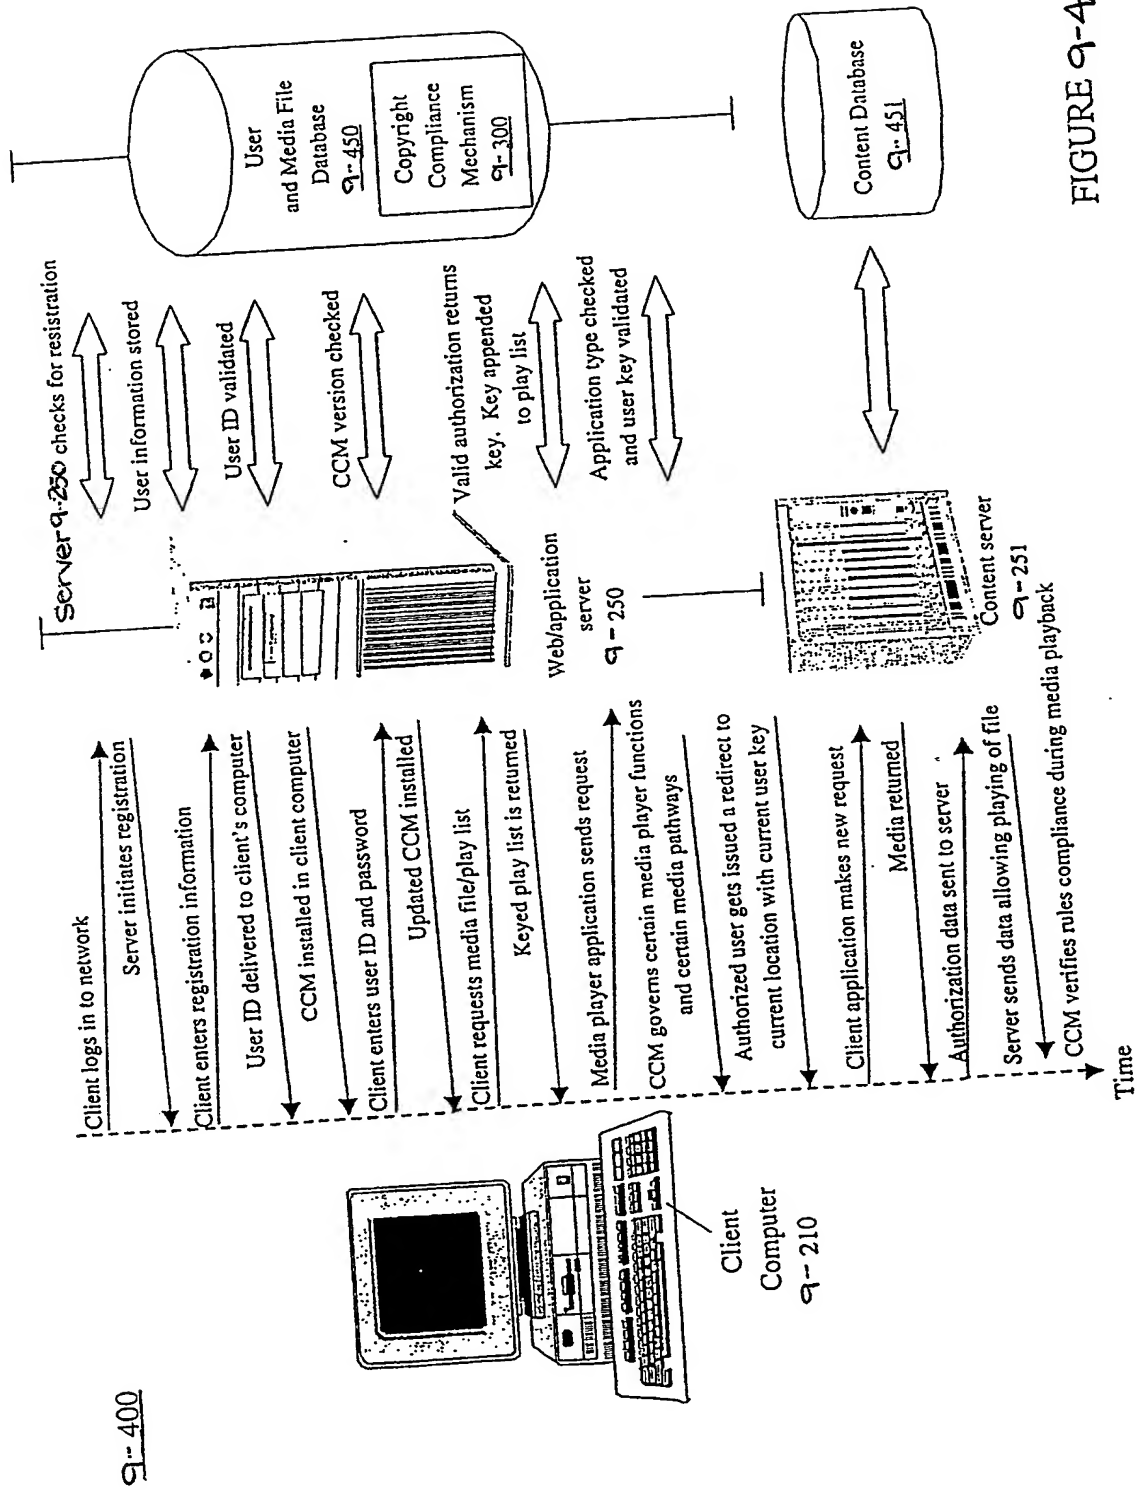 9-400
Client logs in to network
Server initiates registration
Client enters registration information
User ID delivered to client's computer
CCM installed in client computer
Client enters user ID and password
Updated CCM installed
Client requests media file/play list
Keyed play list is returned
Media player application sends request
CCM governs certain media player functions
and certain media pathways
Authorized user gets issued a redirect to
current location with current user key
Client application makes new request
Media returned
Authorization data sent to server
Server sends data allowing playing of file
CCM verifies rules compliance during media playback
Time
Client
Computer
9-210
Server 9-250 checks for resistration
User information stored
User ID validated
CCM version checked
Valid authorization returns
key. Key appended
to play list
Application type checked
and user key validated
Web/application
server
9-250
Content server
9-251
User
and Media File
Database
9-450
Copyright
Compliance
Mechanism
9-300
Content Database
9-451
FIGURE 9-4